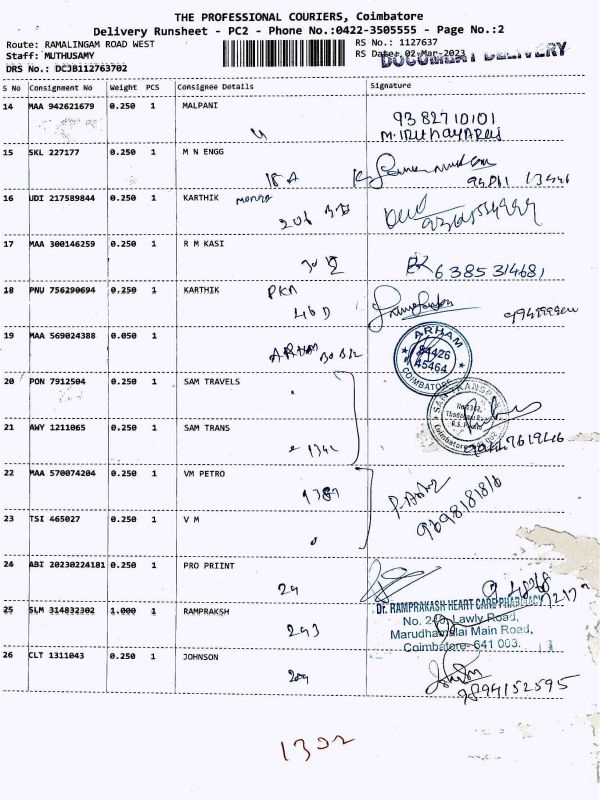 THE PROFESSIONAL COURIERS, Coimbatore
Delivery Runsheet - PC2 - Phone No.:0422-3505555 - Page No.:2
Route: RAMALINGAM ROAD WEST RS No.: 1127637
Staff: MUTHUSAMY RS Date: 02-Mar-2023
DOCUMENT DELIVERY
DRS No.: DCJB112763702
S No Consignment No Weight PCS Consignee Details Signature
14 MAA 942621679 0.250 1 MALPANI
9382710101
15 SKL 227177 0.250 1 M N ENGG
18 A
16 UDI 217589844 0.250 1 KARTHIK
17 MAA 300146259 0.250 1 R M KASI
6385314681
18 PNU 756290694 0.250 1 KARTHIK PKA
46 D
19 MAA 569024388 0.050 1
ARHAM
84426
45464
COIMBATORE
20 PON 7912504 0.250 1 SAM TRAVELS
21 AWY 1211065 0.250 1 SAM TRANS
1342
22 MAA 570074204 0.250 1 VM PETRO
1387
9698181816
23 TSI 465027 0.250 1 V M
24 ABI 20230224181 0.250 1 PRO PRIINT
29
25 SLM 314832302 1.000 1 RAMPRAKSH
243
Dr. RAMPRAKASH HEART CARE PHARMACY
No. 243, Lawly Road,
Marudhamalai Main Road,
Coimbatore- 641 003.
26 CLT 1311043 0.250 1 JOHNSON
209
9894152595
1302